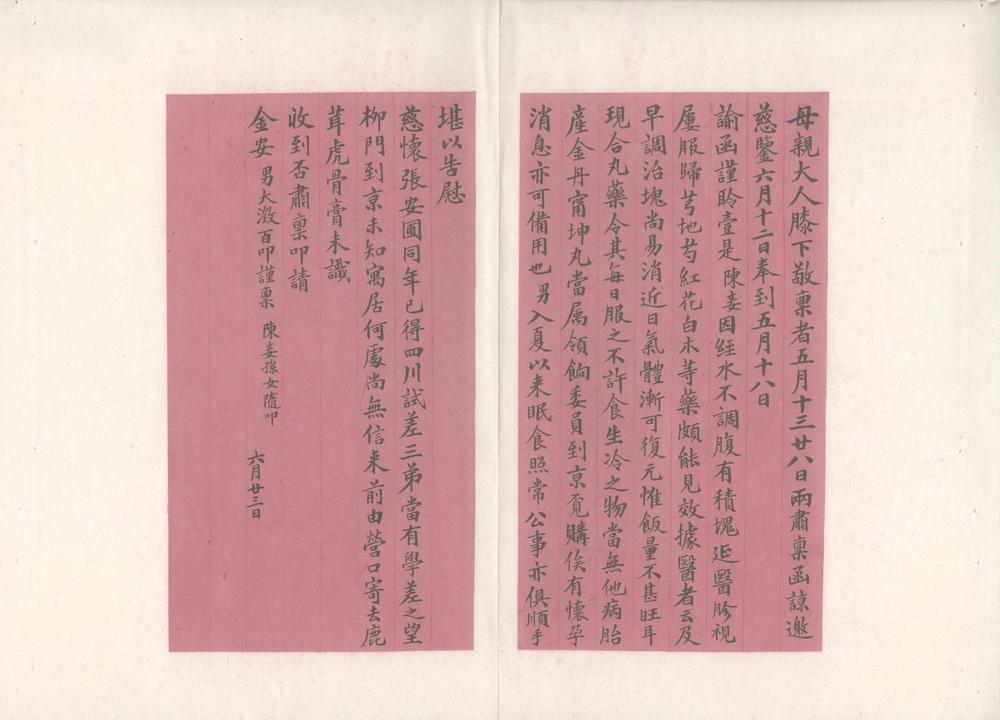 母親大人膝下敬稟者五月十三廿八日兩肅稟函諒邀
慈鑒六月十二日奉到五月十八日
諭函謹聆壹是陳妾因經水不調腹有積塊延醫胗視
屢服歸芎地芍紅花白朮等藥頗能見效據醫者云及
早調治塊尚易消近日氣體漸可復元惟飯量不甚旺耳
現合丸藥令其每日服之不許食生冷之物當無他病胎
產金丹甯坤丸當屬領餉委員到京覓購俟有懷孕
消息亦可備用也男入夏以來眠食照常公事亦俱順手
堪以告慰
慈懷張安圃同年已得四川試差三弟當有學差之望
柳門到京未知寓居何處尚無信來前由營口寄去鹿
茸虎骨膏未識
收到否肅稟叩請
金安男大澂百叩謹稟 陳妾孫女隨叩 六月廿三日